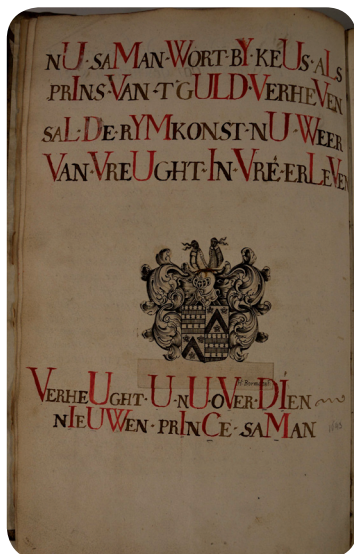 nU·saMan·Wort·bY·keUs·aLs
prIns·Van·t'gULD·VerheVen
saL·De·rYMkonst·nU·Weer
Van·VreUght·In·Vré·erLeVen
VerheUght·U·nU·oVer·DIen
nIeUWen·prInCe·saMan